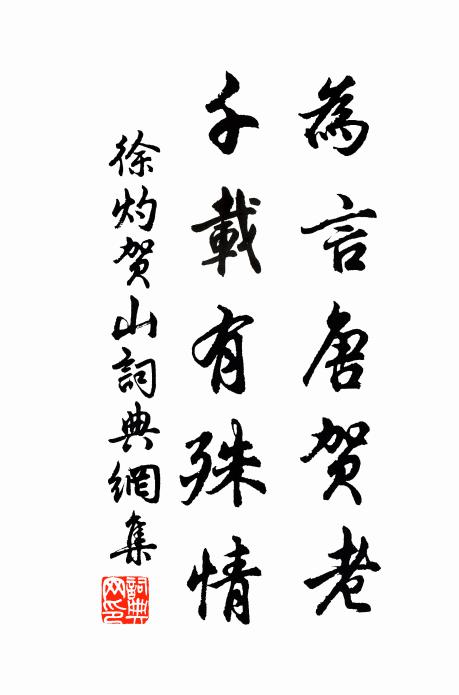 為言唐贺老
千載有殊情
徐灼贺山詞典網集
詞典网印